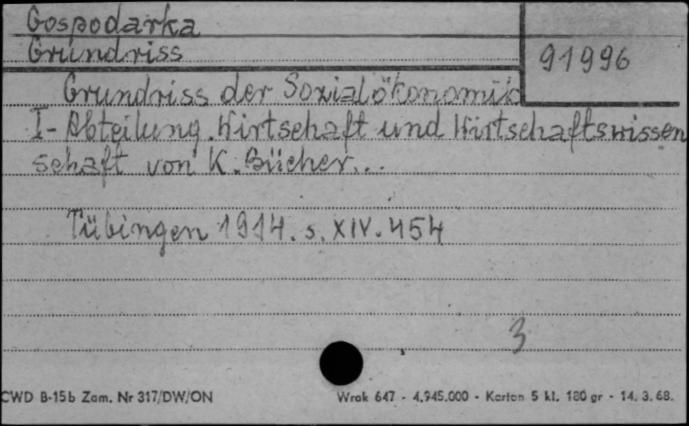 Gospodarka
Grundriss
91996
Grundriss der Sozialökonomik
I- Abteilung. Wirtschaft und Wirtschaftswissen
schaft von K. Bücher...
Tübingen 1914. s. XIV. 454
3
CWD B-15b Zam. Nr 317/DW/ON
Wrak 647 - 4.945.000 - Karton 5 kl. 180 gr - 14. 3. 68.